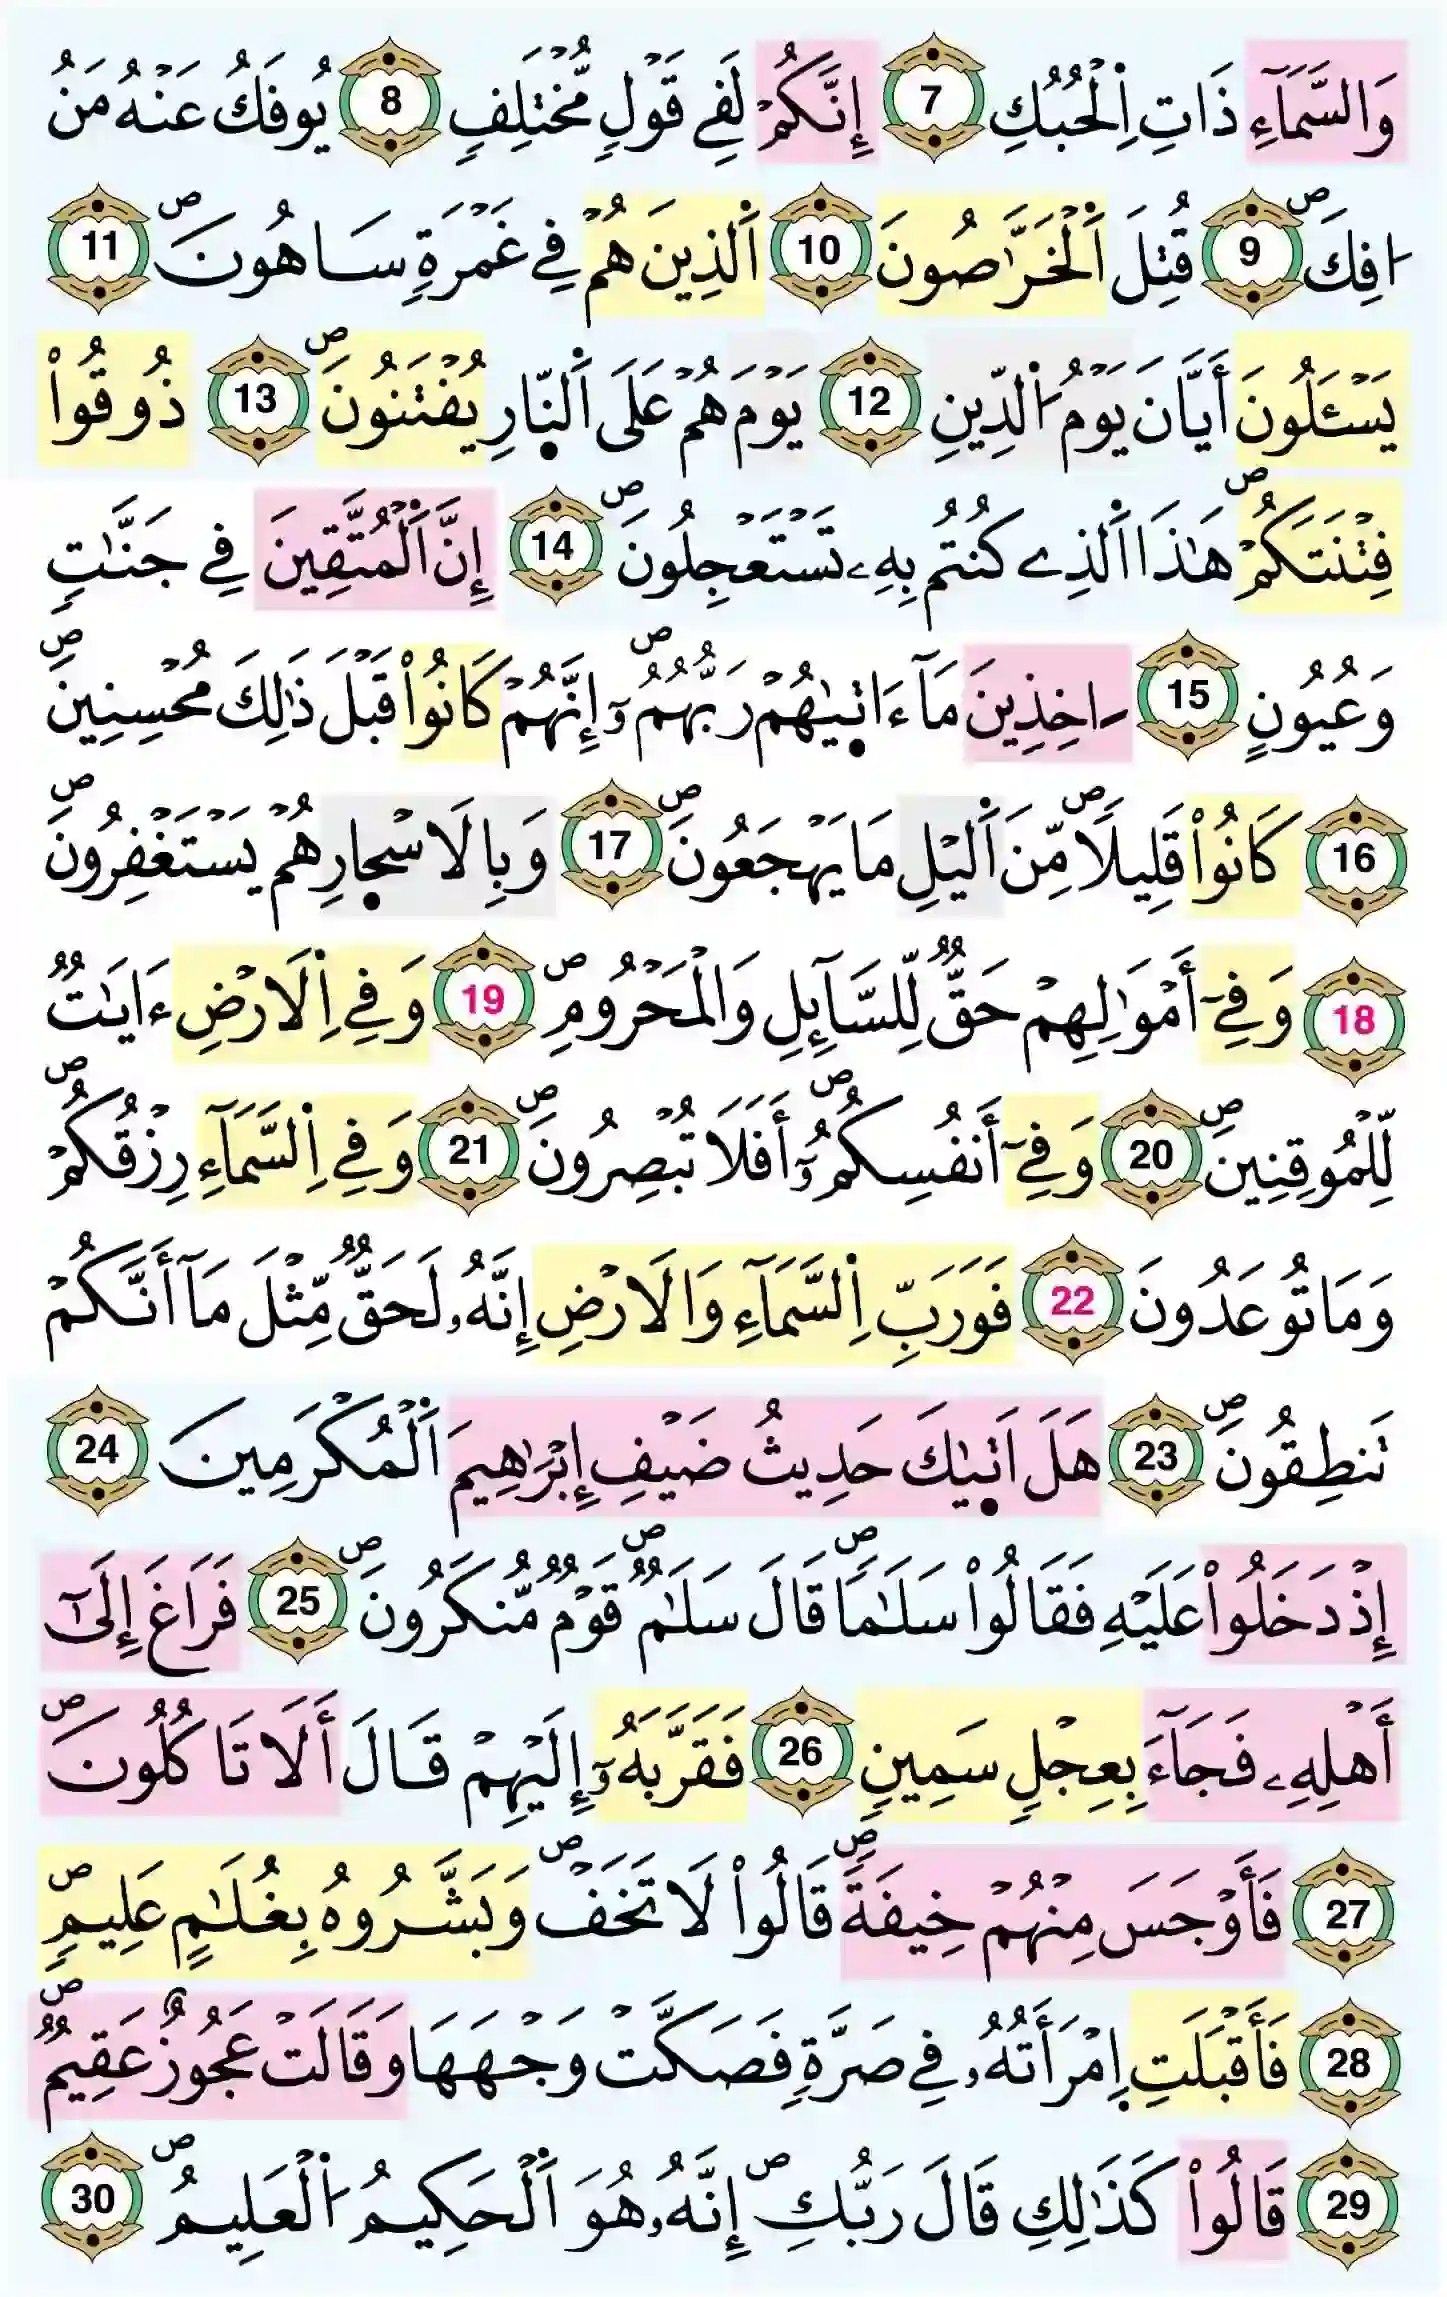 وَالسَّمَآءِ ذَاتِ اِ۬لْحُبُكِ 7 إِنَّكُمْ لَفِے قَوْلٖ مُّخْتَلِفٖ 8 يُوفَكُ عَنْهُ مَنُ
ا۟فِكَۖ 9 قُتِلَ اَ۬لْخَرَّٰصُونَ 10 اَ۬لذِينَ هُمْ فِے غَمْرَةٖ سَاهُونَۖ 11
يَسْـَٔلُونَ أَيَّانَ يَوْمُ اُ۬لدِّينِ 12 يَوْمَ هُمْ عَلَى اَ۬لنّ۪ارِ يُفْتَنُونَۖ 13 ذُوقُواْ
فِتْنَتَكُمْۖ هَٰذَا اَ۬لذِے كُنتُم بِهِۦ تَسْتَعْجِلُونَۖ 14 إِنَّ اَ۬لْمُتَّقِينَ فِے جَنَّٰتٖ
وَعُيُونٍ 15 ـاخِذِينَ مَآ ءَات۪يٰهُمْ رَبُّهُمُۥٓۖ إِنَّهُمْ كَانُواْ قَبْلَ ذَٰلِكَ مُحْسِنِينَۖ
16 كَانُواْ قَلِيلاٗۖ مِّنَ اَ۬ليْلِ مَا يَهْجَعُونَۖ 17 وَبِالَاسْح۪ارِ هُمْ يَسْتَغْفِرُونَۖ
18 وَفِےٓ أَمْوَٰلِهِمْ حَقّٞ لِّلسَّآئِلِ وَالْمَحْرُومِۖ 19 وَفِے اِ۬لَارْضِ ءَايَٰتٞ
لِّلْمُوقِنِينَۖ 20 وَفِےٓ أَنفُسِكُمُۥٓۖ أَفَلَا تُبْصِرُونَۖ 21 وَفِے اِ۬لسَّمَآءِ رِزْقُكُمْۖ
وَمَا تُوعَدُونَ 22 فَوَرَبِّ اِ۬لسَّمَآءِ وَالَارْضِ إِنَّهُۥ لَحَقّٞ مِّثْلَ مَآ أَنَّكُمْ
تَنطِقُونَۖ 23 هَلَ اَت۪يٰكَ حَدِيثُ ضَيْفِ إِبْرَٰهِيمَ اَ۬لْمُكْرَمِينَ 24
إِذْ دَخَلُواْ عَلَيْهِ فَقَالُواْ سَلَٰماٗۖ قَالَ سَلَٰمٞۖ قَوْمٞ مُّنكَرُونَۖ 25 فَرَاغَ إِلَىٰٓ
أَهْلِهِۦ فَجَآءَ بِعِجْلٖ سَمِينٖ 26 فَقَرَّبَهُۥٓ إِلَيْهِمْ قَالَ أَلَا تَاكُلُونَۖ
27 فَأَوْجَسَ مِنْهُمْ خِيفَةٗۖ قَالُواْ لَا تَخَفْۖ وَبَشَّرُوهُ بِغُلَٰمٍ عَلِيمٖۖ
28 فَأَقْبَلَتِ إِ۪مْرَأَتُهُۥ فِے صَرَّةٖ فَصَكَّتْ وَجْهَهَا وَقَالَتْ عَجُوزٌ عَقِيمٞۖ
29 قَالُواْ كَذَٰلِكِ قَالَ رَبُّكِۖ إِنَّهُۥ هُوَ اَ۬لْحَكِيمُ اُ۬لْعَلِيمُۖ 30